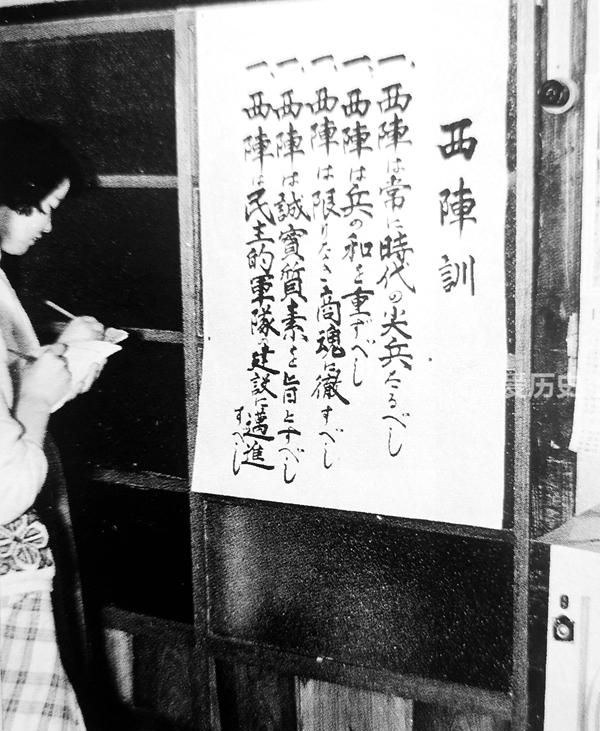 西陣訓
一、西陣は常に時代の尖兵たるべし
一、西陣は兵の和を重ずべし
一、西陣は限りなき商魂に徹すべし
一、西陣は誠實質素を旨とすべし
一、西陣は民主的軍隊の建設に邁進
すべし
历史